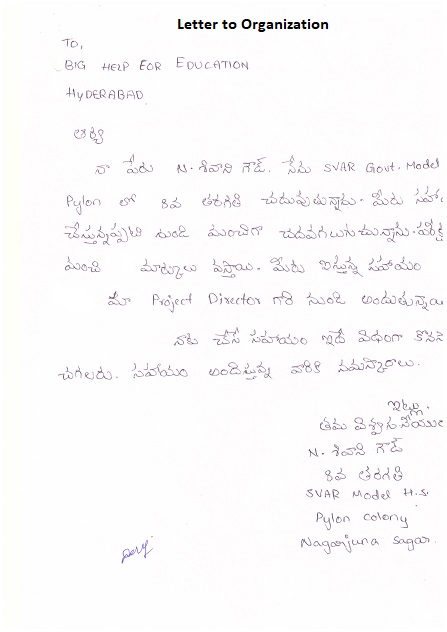 Letter to Organization
TO,
BIG HELP FOR EDUCATION
HYDERABAD
ఆర్య
నా పేరు N. శివాని గౌడ్. నేను SVAR Govt. Model
Pylon లో 8వ తరగతి చదువుతున్నాను. మీరు సహా
చేస్తున్నప్పటి నుండి మంచిగా చదవగలుగుచున్నాను.
మంచి మార్కులు వస్తాయి. మీరు ఇస్తున్న సహాయం
మా Project Director గారి నుండి అందుతున్నాయి
నాకు చేసే సహాయం ఇదే విధంగా
చగలరు. సహాయం అందిస్తున్న వారికి నమస్కారాలు.
ఇట్లు
తమ
N. శివాని గౌడ్
8వ తరగతి
SVAR Model H.S.
Pylon colony
Nagarjuna sagar.